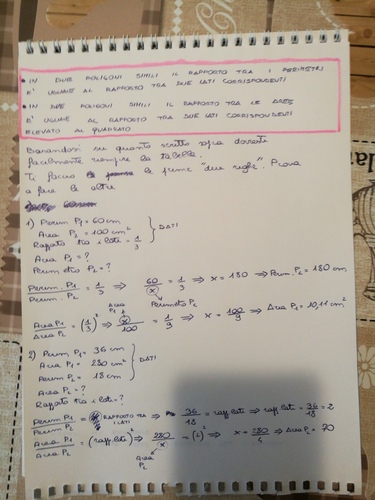 • IN DUE POLIGONI SIMILI IL RAPPORTO TRA I PERIMETRI
E' UGUALE AL RAPPORTO TRA DUE LATI CORRISPONDENTI
• IN DUE POLIGONI SIMILI IL RAPPORTO TRA LE AREE
E' UGUALE AL RAPPORTO TRA DUE LATI CORRISPONDENTI
ELEVATO AL QUADRATO
Basandoti su quanto scritto sopra dovresti
facilmente riempire la tabella.
Ti faccio le prime "due righe". Prova
a fare le altre
1) Perim P1 = 60 cm
Area P2 = 100 cm² } DATI
Rapporto tra i lati = 1/3
Area P1 = ?
Perimetro P2 = ?
Perim. P1 / Perim. P2 = 1/3 ⇒ 60/(x) = 1/3 ⇒ x = 180 ⇒ Perim. P2 = 180 cm
Perimetro P2
Area P1
Area P1 / Area P2 = (1/3)² ⇒ (x)/100 = 1/9 ⇒ x = 100/9 ⇒ Area P1 = 10,11 cm²
2) Perim P1 = 36 cm
Area P1 = 280 cm² } DATI
Perim P2 = 18 cm
Area P2 = ?
Rapporto tra i lati = ?
Perim P1 / Perim P2 = RAPPORTO TRA I LATI ⇒ 36/18 = rapp. lati ⇒ rapp. lati = 36/18 = 2
Area P1 / Area P2 = (rapp. lati)² ⇒ 280/x = (2)² ⇒ x = 280/4 ⇒ Area P2 = 70
Area P2